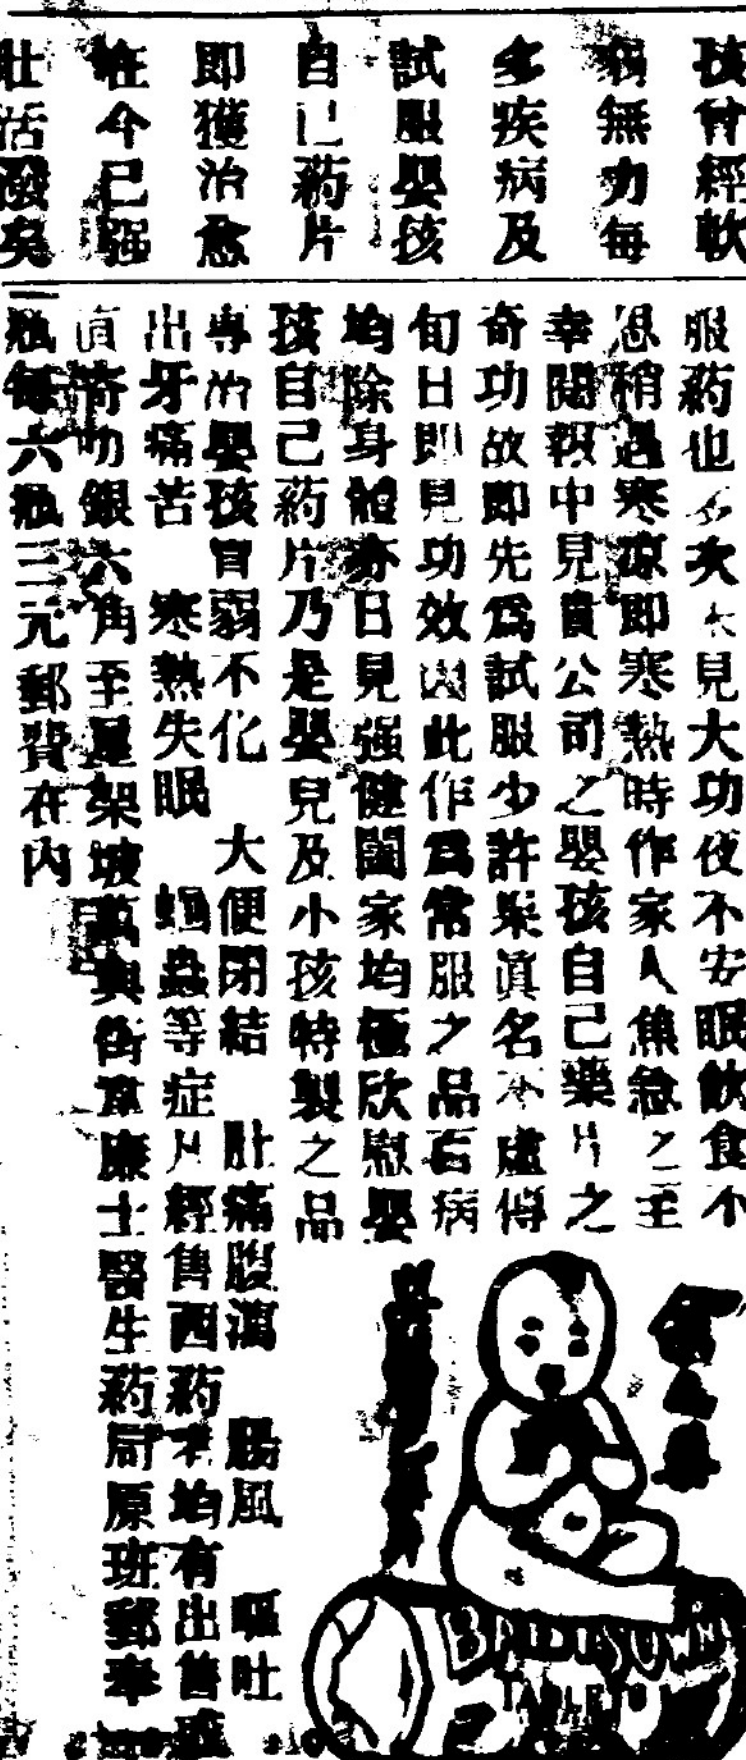 孩曾經軟
弱無力每
多疾病及
試服嬰孩
自己葯片
即獲治愈
在今已强
壯活潑矣
服葯也多次未見大功夜不安眠飲食不
思稍遇寒凉即寒熱時作家人焦急之至
幸閱報中見貴公司之嬰孩自己藥片之
奇功故即先爲試服少許果眞名不虛傳
旬日即見功效因此作爲常服之品百病
均除身體亦日見强健闔家均極欣慰嬰
孩自己葯片乃是嬰兒及小孩特製之品
專治嬰孩胃弱不化 大便閉結 肚痛腹瀉 腸風 嘔吐
出牙痛苦 寒熱失眠 蛔蟲等症凡經售西葯者均有出售
直寄叻銀六角至星架坡 街韋廉士醫生葯局原班郵奉
瓶每六瓶三元郵費在內
BABY'S OWN
TABLETS